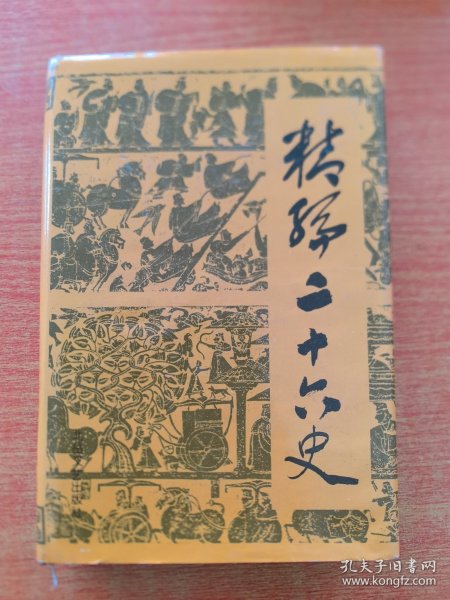 精编二十六史
孔夫子旧书网
www.kongfz.com